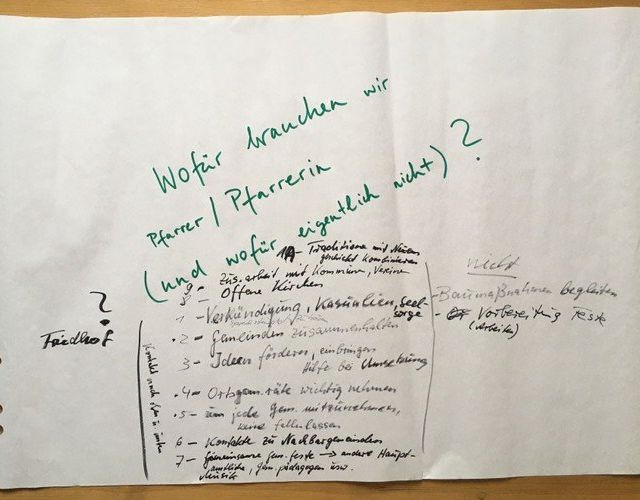 Wofür brauchen wir
Pfarrer / Pfarrerin
(und wofür eigentlich nicht) ?
10 - Traditionen mit Neuem
geschickt kombinieren
9 - Zus.arbeit mit Kommune, Vereine
8 - Offene Kirchen
1 - Verkündigung, Kasualien, Seel-
sorge
2 - Gemeinden zusammenhalten
3 - Ideen fördern, einbringen
Hilfe bei Umsetzung
4 - Ortsgem.räte wichtig nehmen
5 - um jede Gem. mitzunehmen,
keine fallenlassen
6 - Kontakte zu Nachbargemeinden
7 - Gemeinsame Gem.feste → andere Haupt-
amtliche, Gem.pädagogen usw.
Musik
Kontakt nach oben u. unten
?
Friedhof
nicht
- Baumaßnahmen begleiten
- Vorbereitung Feste
(Arbeiten)